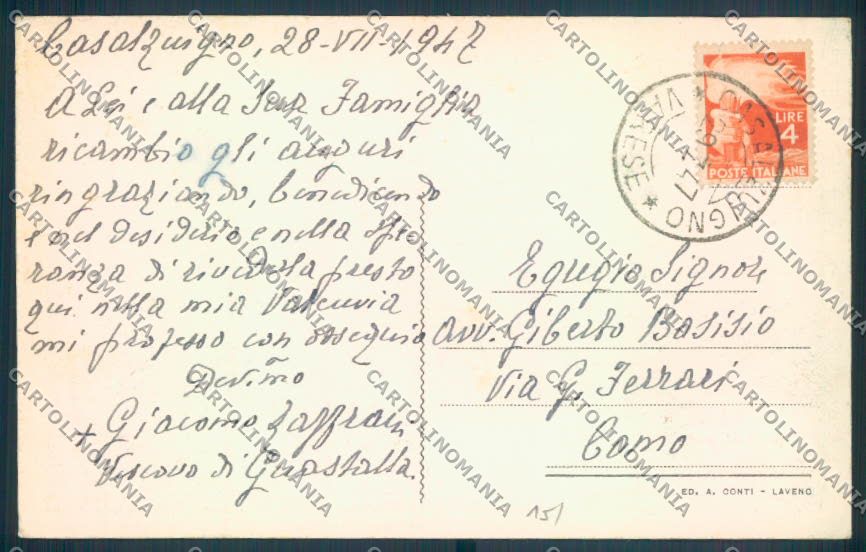 Casalzuigno, 28-VII-1947
A Lei e alla Sua Famiglia
ricambio gli auguri
ringraziando, benedicendo
e nel desiderio e nella spe
ranza di rivederla presto
qui nella mia Valcuvia
mi professo con ossequio
Dev.mo
+ Giacomo Zaffrani
Vescovo di Guastalla
LIRE
4
POSTE ITALIANE
CASALZUIGNO
* VARESE *
Egregio Signore
Avv. Giberto Bosisio
Via G. Ferrari
Como
ED. A. CONTI - LAVENO
15/
CARTOLINOMANIA